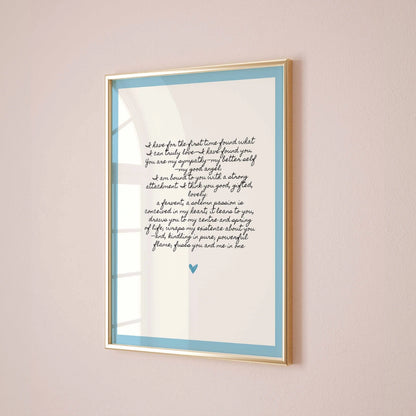 I have for the first time found what
I can truly love—I have found you.
You are my sympathy—my better self
—my good angel.
I am bound to you with a strong
attachment. I think you good, gifted,
lovely:
a fervent, a solemn passion is
conceived in my heart; it leans to you,
draws you to my centre and spring
of life, wraps my existence about you
—and, kindling in pure, powerful
flame, fuses you and me in one